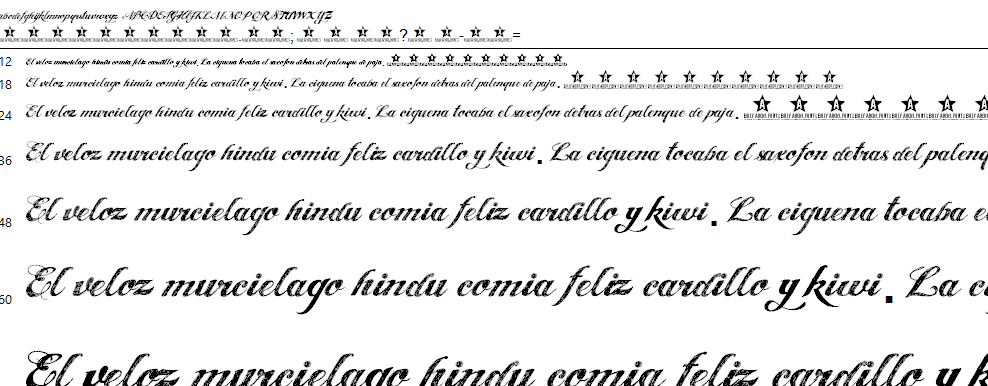 abcdefghijklmnopqrstuvwxyz ABCDEFGHIJKLMNOPQRSTUVWXYZ
.:,;?-=
12 El veloz murcielago hindu comia feliz cardillo y kiwi. La ciguena tocaba el saxofon detras del palenque de paja.
18 El veloz murcielago hindu comia feliz cardillo y kiwi. La ciguena tocaba el saxofon detras del palenque de paja.
24 El veloz murcielago hindu comia feliz cardillo y kiwi. La ciguena tocaba el saxofon detras del palenque de paja.
36 El veloz murcielago hindu comia feliz cardillo y kiwi. La ciguena tocaba el saxofon detras del palenq
48 El veloz murcielago hindu comia feliz cardillo y kiwi. La ciguena tocaba e
60 El veloz murcielago hindu comia feliz cardillo y kiwi. La c
El veloz murcielago hindu comia feliz cardillo y k